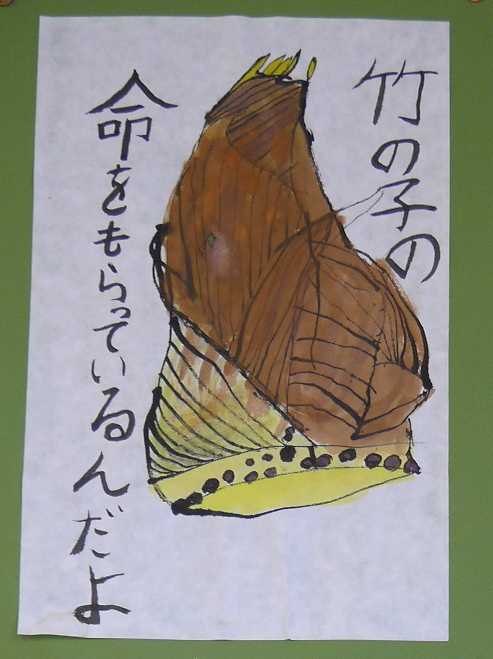 竹の子の
命をもらっているんだよ